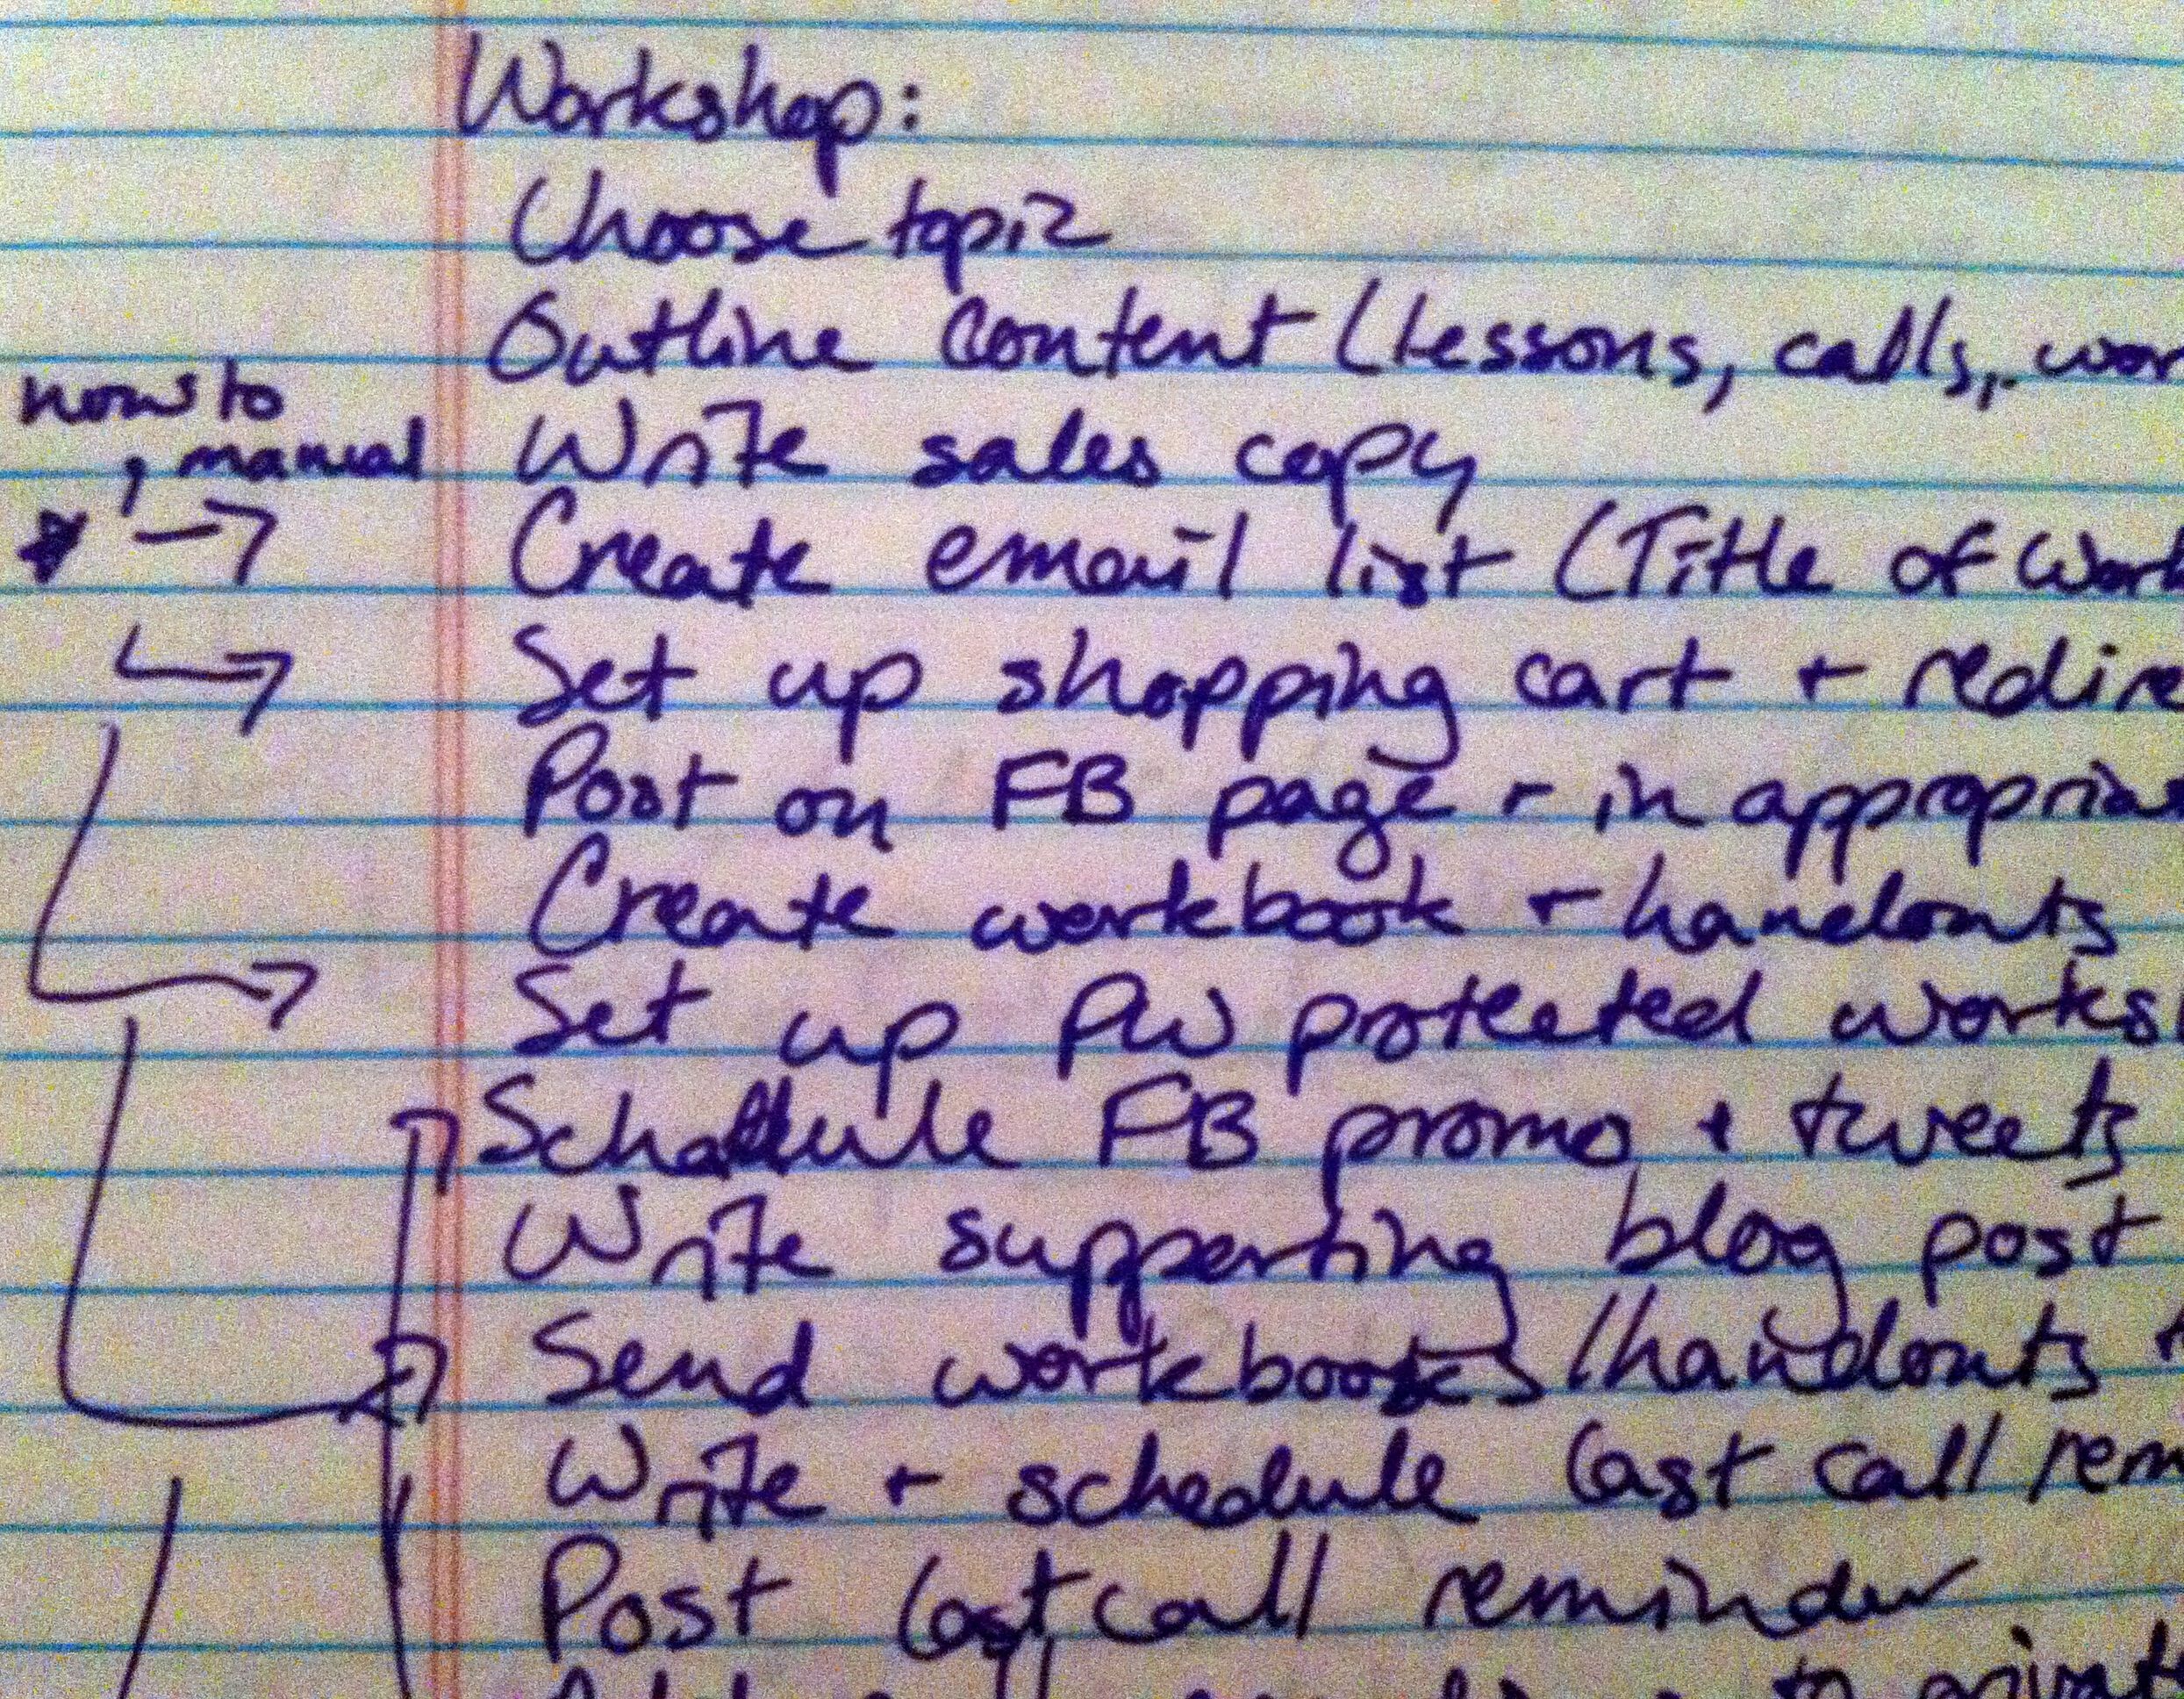 Workshop:
Choose topic
Outline Content (lessons, calls, wor
how to
manual
Write sales copy
Create email list (Title of Work
Set up shopping cart + redire
Post on FB page + in appropria
Create workbook + handouts
Set up PW protected works
Schedule FB promo + tweets
Write supporting blog post
Send workbooks/handouts +
Write + schedule last call rem
Post last call reminder
to privat